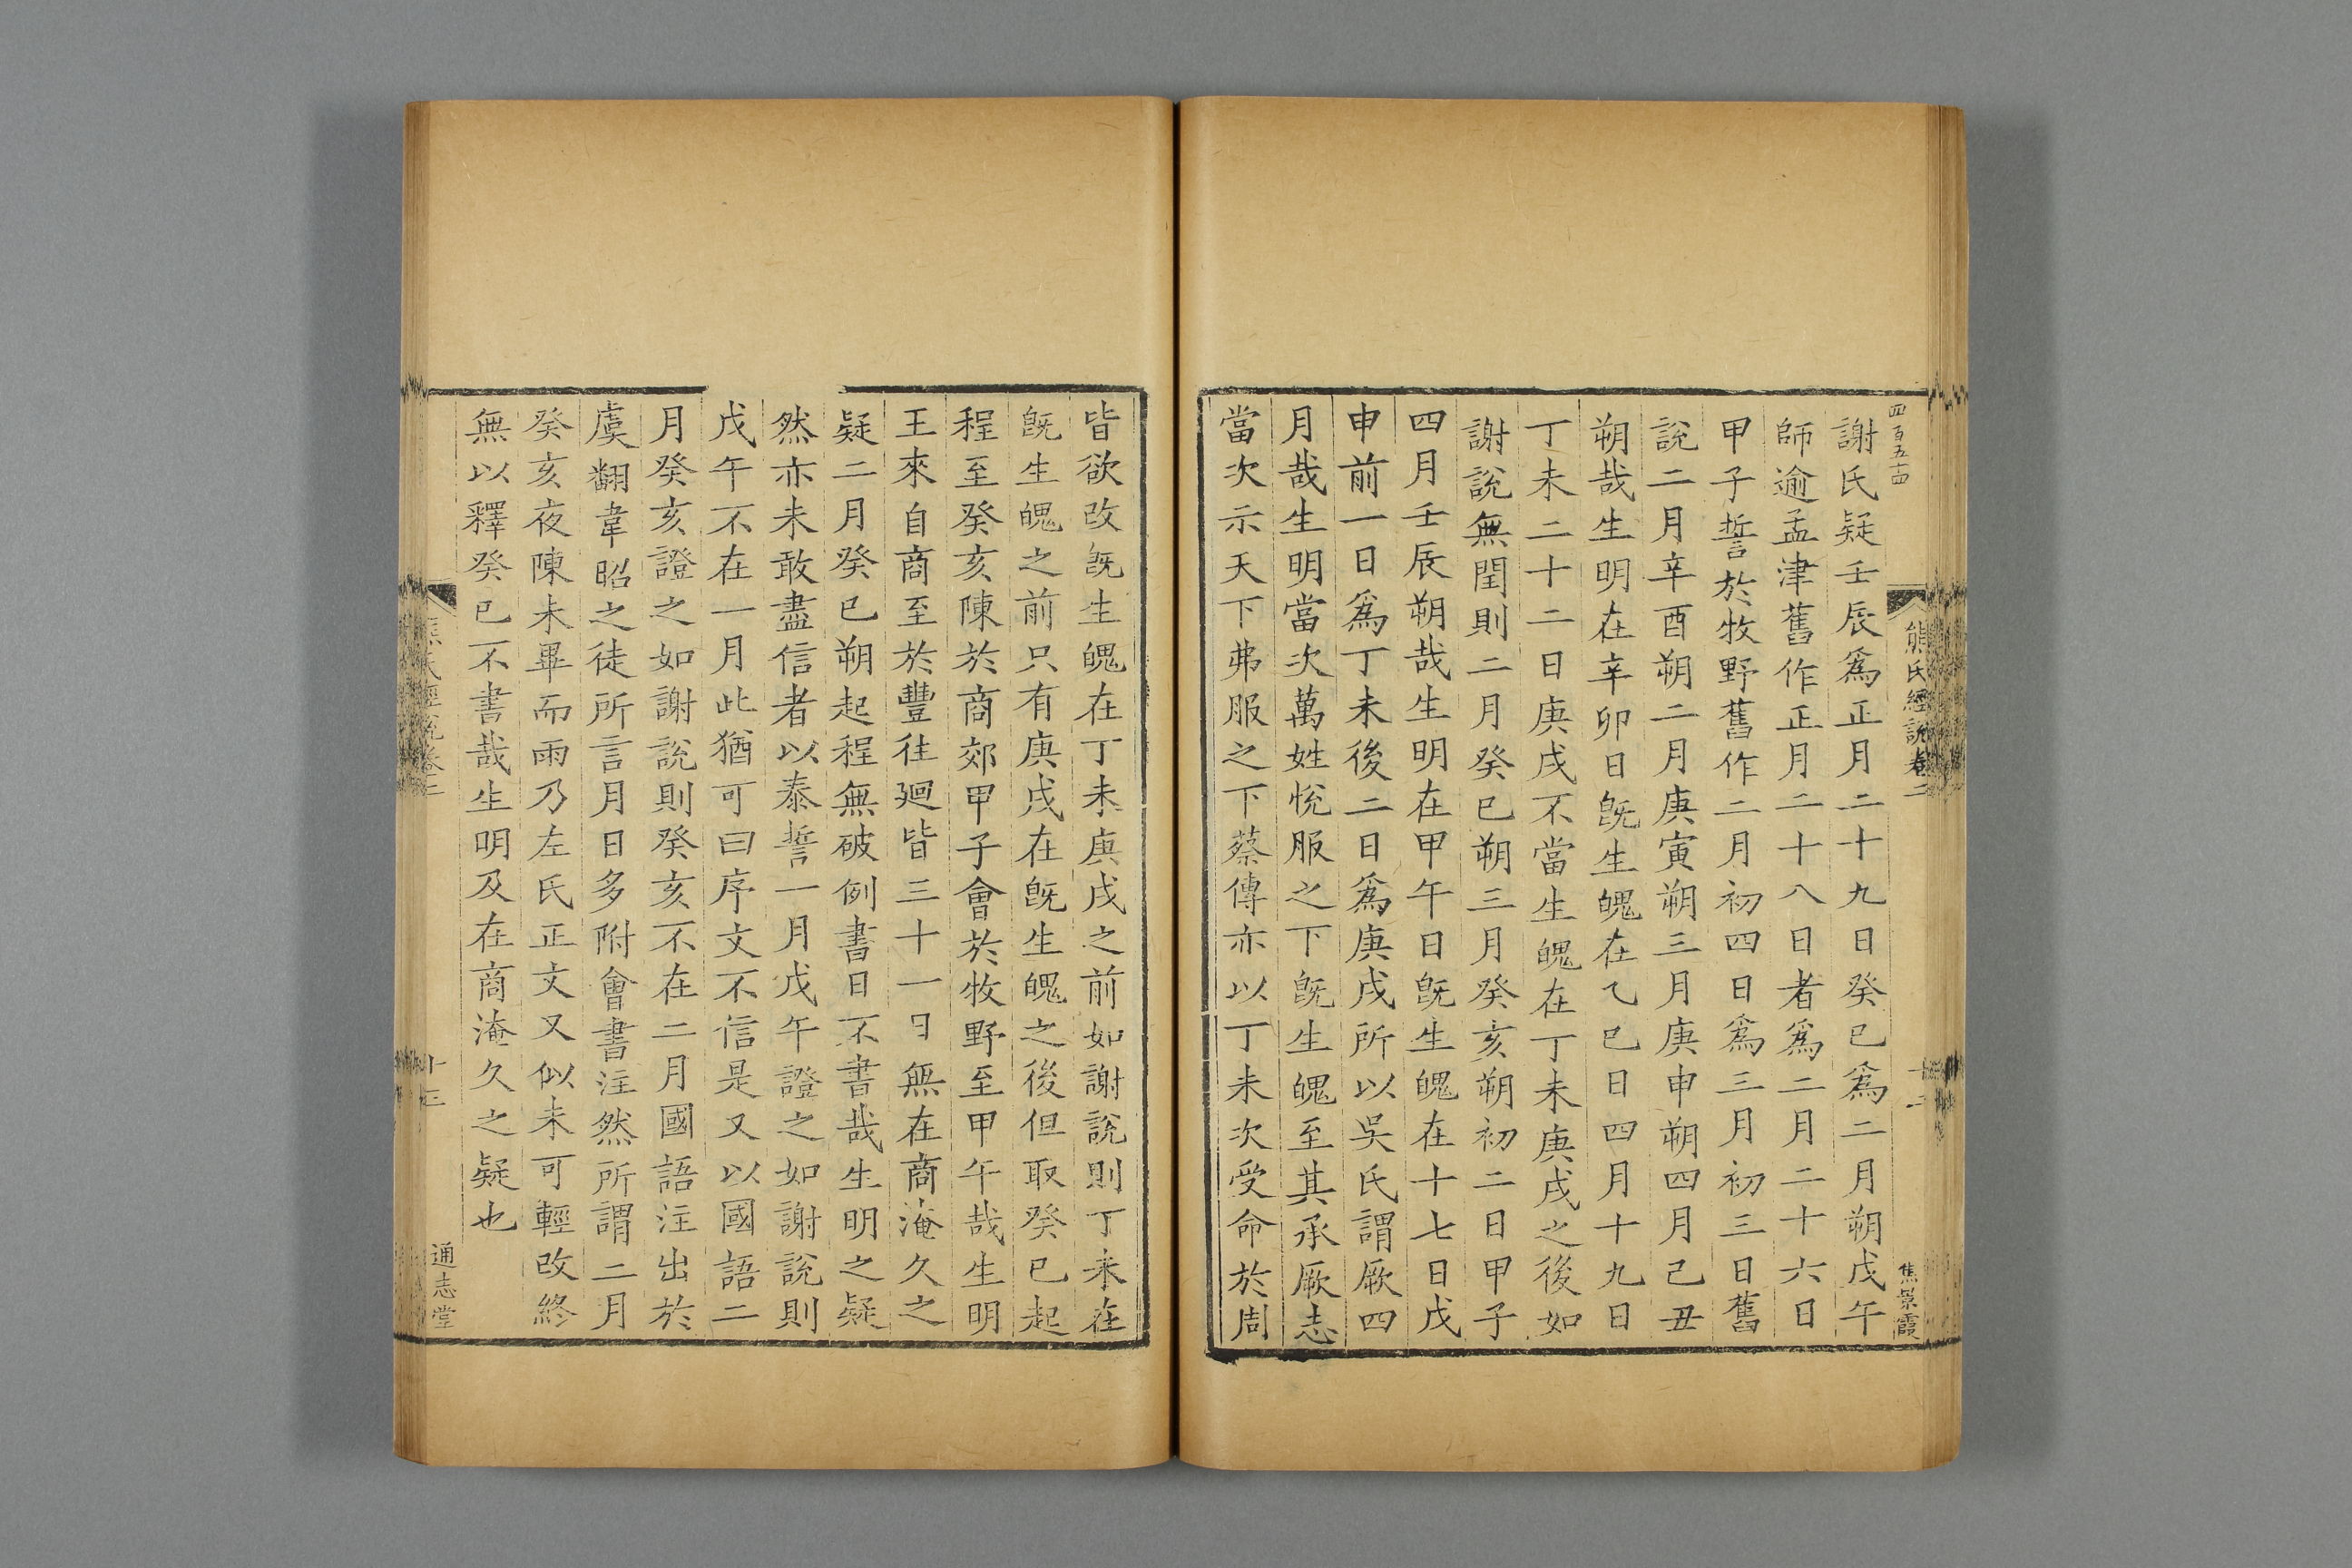 四百五十四
熊氏經說卷二
十二
焦景霞
謝氏疑壬辰爲正月二十九日癸巳爲二月朔戊午
師逾孟津舊作正月二十八日者爲二月二十六日
甲子誓於牧野舊作二月初四日爲三月初三日舊
說二月辛酉朔二月庚寅朔三月庚申朔四月己丑
朔哉生明在辛卯日旣生魄在乙巳日四月十九日
丁未二十二日庚戌不當生魄在丁未庚戌之後如
謝說無閏則二月癸巳朔三月癸亥朔初二日甲子
四月壬辰朔哉生明在甲午日旣生魄在十七日戊
申前一日爲丁未後二日爲庚戌所以吳氏謂厥四
月哉生明當次萬姓悅服之下旣生魄至其承厥志
當次示天下弗服之下蔡傳亦以丁未次受命於周
皆欲改旣生魄在丁未庚戌之前如謝說則丁未在
旣生魄之前只有庚戌在旣生魄之後但取癸巳起
程至癸亥陳於商郊甲子會於牧野至甲午哉生明
王來自商至於豐往廻皆三十一日無在商淹久之
疑二月癸巳朔起程無破例書日不書哉生明之疑
然亦未敢盡信者以泰誓一月戊午證之如謝說則
戊午不在一月此猶可曰序文不信是又以國語二
月癸亥證之如謝說則癸亥不在二月國語注出於
虞翻韋昭之徒所言月日多附會書注然所謂二月
癸亥夜陳未畢而雨乃左氏正文又似未可輕改終
無以釋癸巳不書哉生明及在商淹久之疑也
熊氏經說卷二
十三
通志堂